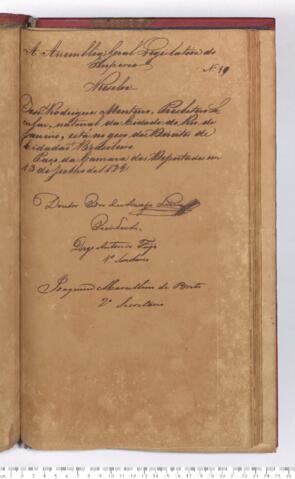 A Assemblea Geral Legislativa do
Imperio
Nº 49
Resolve
Rodrigues Monteiro, Presbitero Se
cular, natural da Cidade do Rio de
Janeiro, está no gozo dos Direitos de
Cidadão Brasileiro.
Paço da Camara dos Deputados em
13 de Junho de
Doutor de Araujo
Presidente
Diogo Antonio Feijó
1º Secretario
Joaquim Marcellino de Brito
2º Secretario